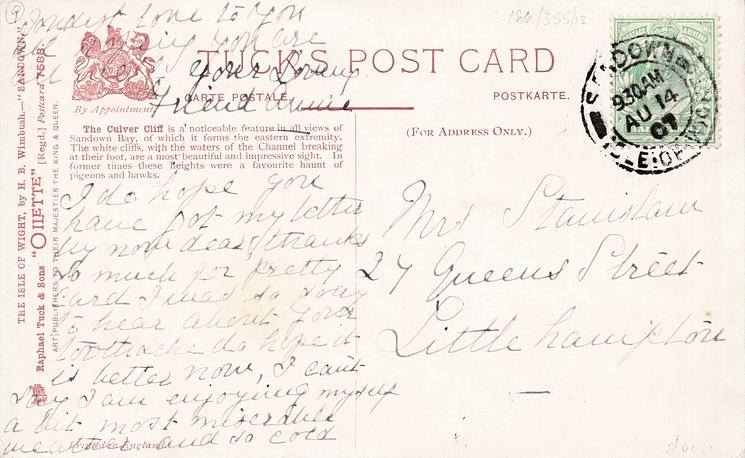 186/3551/2
Fondest love to you
hoping you are
your loving
Friend Annie
TUCK'S POST CARD
By Appointment
CARTE POSTALE.
POSTKARTE.
(FOR ADDRESS ONLY.)
SANDOWN
9.30AM
AU 14
07
ISLE OF WIGHT
The Culver Cliff is a noticeable feature in all views of
Sandown Bay, of which it forms the eastern extremity.
The white cliffs, with the waters of the Channel breaking
at their foot, are a most beautiful and impressive sight. In
former times these heights were a favourite haunt of
pigeons and hawks.
THE ISLE OF WIGHT, by H. B. Wimbush.—"SANDOWN."
Raphael Tuck & Sons "OILETTE" [Regd.] Postcard 7588.
ART PUBLISHERS TO THEIR MAJESTIES THE KING & QUEEN.
I do hope you
have got my letter
by now dear, thanks
so much for pretty
card I was so sorry
to hear about your
toothache do hope it
is better now, I can't
say I am enjoying myself
a bit most miserable
weather and so cold
Printed in England
Mrs Stanislaw
27 Queens Street
Littlehampton